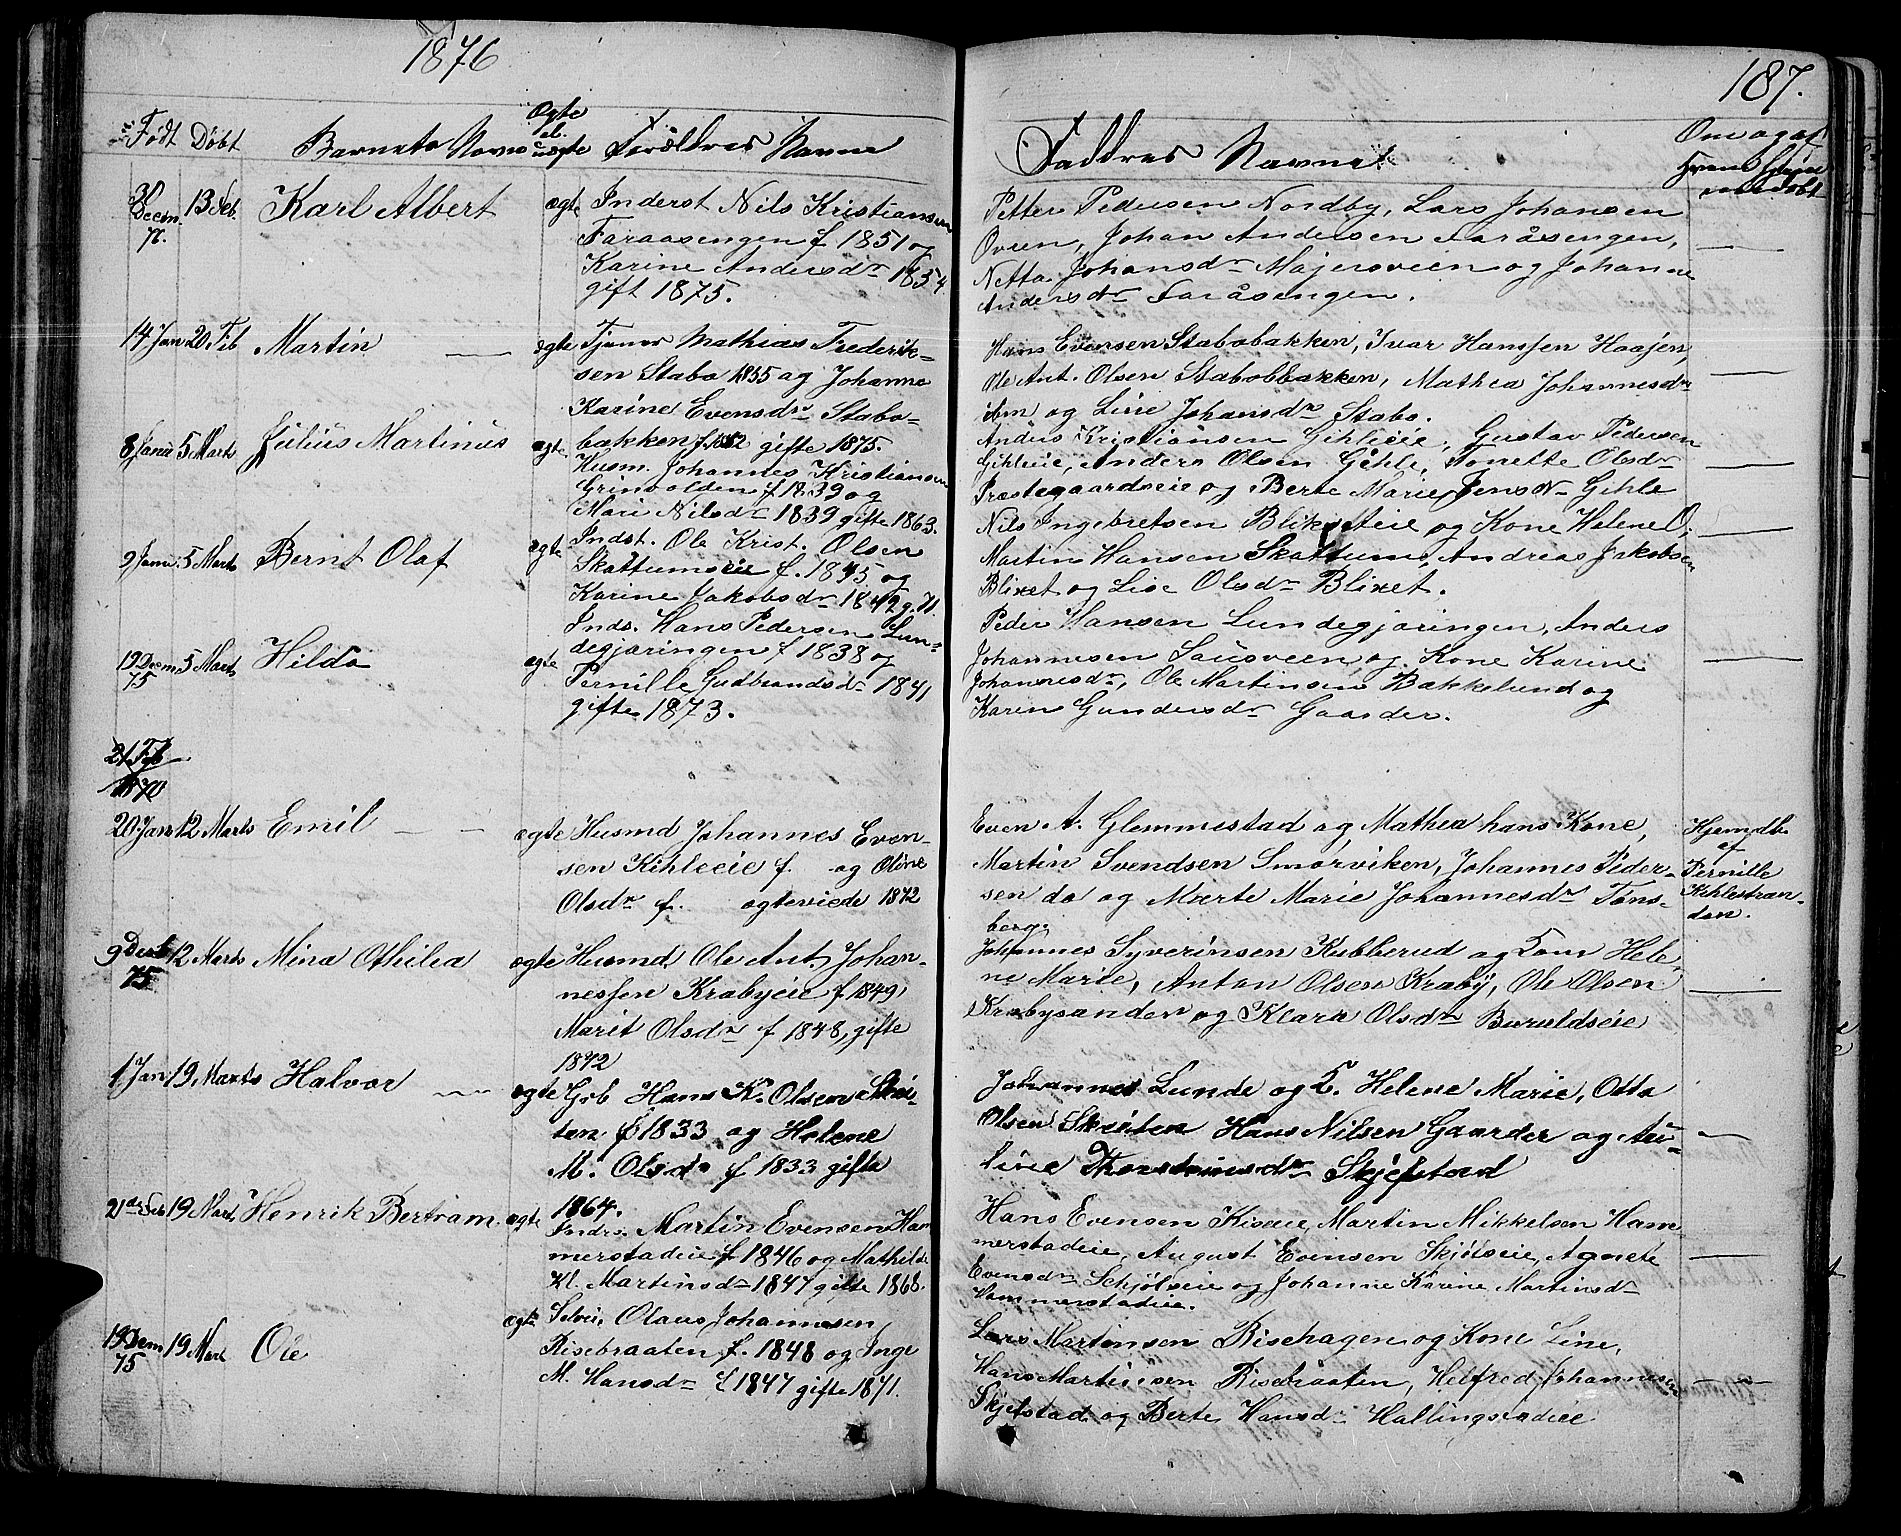 1876
187.
Født Døbt Barnets Navn ægte el. uægte Foreldres Navne
Faddres Navne Om og af
hvem hjemmedøbt
Decem. 13 Feb. Karl Albert ægte Inderst Nils Kristiansen
Faraasengen f 1851 og
Karine Andersdr 1854
gift 1875.
Petter Pedersen Nordby, Lars Johansen
Ovren, Johan Andersen Faråsengen,
Netta Johansdr Majersveen og Johanne
Andersdr Faråsengen.
14 Jan 20 Feb Martin ægte Tjener Mathias Frederik-
sen Stabo 1855 og Johanne
Karine Evensdr Stabo-
bakken f. 1852 gifte 1875.
Hans Evensen Stabobakken, Ivar Hanssen Haajen,
Ole Ant. Olsen Stabobakken, Mathea Johannesdr
ibm og Line Johansdr Stabo.
8 Janu 5 Marts Julius Martinus ægte
Husm. Johannes Kristiansen
Grinvolden f 1839 og
Mari Nilsdr 1839 gifte 1863.
Anders Kristiansen Gihleeie, Gustav Pedersen
Gihleeie, Anders Olsen Gihle, Tonette Olsdr
Præstegaardseie og Berte Marie Jensdr Gihle
9 Janu. 5 Marts Bernt Olaf ægte Indst. Ole Krist. Olsen
Skattumseie f. 1845 og
Karine Jakobsdr 1842 g. 71.
Nils Ingebretsen Bliksteie og Kone Helene O,
Martin Hansen Skattum, Andreas Jakobsen
Blixet og Lise Olsdr Blixet.
19 Decm 75 5 Marts Hilda ægte
Inds. Hans Pedersen Lun-
degjæringen f 1838 og
Pernille Gudbrandsdr 1841
gifte 1873.
Peder Hansen Lundegjæringen, Anders
Johannesen Sausveen og Kone Karine
Johannesdr, Ole Martinsen Bakkelund og
Karen Gundersdr Gaarder.
21 Feb
1870
20 Jan 12 Marts Emil ægte Husmd Johannes Even-
sen Kihleeie f. og Oline
Olsdr f. ægteviede 1872
Even A. Glemmestad og Mathea hans Kone,
Martin Svendsen Smørviken, Johannes Peder-
sen do og Marte Marie Johannesdr Tøns-
berg.
Hjemdb.
af
Pernille
Kihlestran-
den.
9 Decb 75 12 Marts Mina Othilia ægte Husmd. Ole Ant. Johan-
nessen Krabyeie f 1849,
Marit Olsdr f 1848, gifte
1872
Johannes Syverinsen Kubberud og Kone Hele-
ne Marie, Anton Olsen Kraby, Ole Olsen
Krabysanden og Klara Olsdr Buruldseie
1 Jan 19 Marts Halvor ægte Grb Hans K. Olsen Skøi-
ten f 1833 og Helene
M. Olsdr f 1833 gifte
1864.
Johannes Lunde og K. Helene Marie, Otto
Olsen Skøiten Hans Nilsen Gaarder og Au-
line Thorsteinsdr Skjefstad
21de Feb 19 Marts Henrik Bertram. ægte
Inds. Martin Evensen Ham
merstadeie f 1846 og Mathilde
Kl. Martinsdr 1847 gifte 1868.
Hans Evensen Kiseie, Martin Mikkelsen Ham
merstadeie, August Evensen Skjølseie, Agnete
Evensdr Schjølseie og Johanne Karine Martinsdr
Hammerstadeie.
19 Decem 75 19 Mart Ole ægte Selvei. Olaus Johannesen
Risebraaten f. 1848 og Inge
M. Hansdr f 1847 gifte 1871.
Lars Martensen Risehagen og Kone Line,
Hans Martinsen Risebraaten, Helfred Johannesen
Skjefstad og Berte Hansdr Hallingstadeie